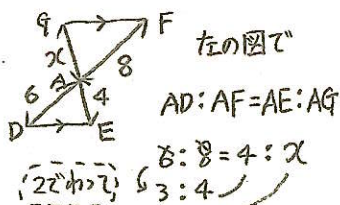 G F
x 8
A
6 4
D E
左の図で
AD:AF=AE:AG
6:8=4:x
2でわって
3:4